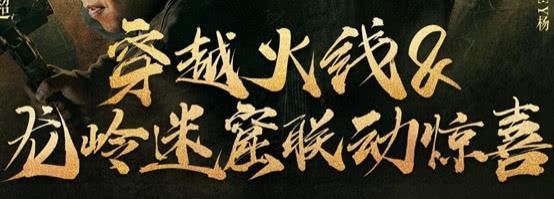 穿越火线&
龙岭迷窟联动惊喜
杨